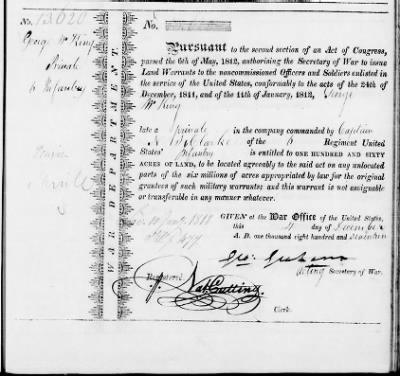 No. 13620
George McKing
Private
6 Infantry
WAR DEPARTMENT.
No.
Pursuant to the second section of an Act of Congress,
passed the 6th of May, 1812, authorising the Secretary of War to issue
Land Warrants to the noncommissioned Officers and Soldiers enlisted in
the service of the United States, conformably to the acts of the 24th of
December, 1811, and of the 11th of January, 1812, George
McKing
late a private in the company commanded by Captain
of the 6 Regiment United
States' Infantry is entitled to ONE HUNDRED AND SIXTY
ACRES OF LAND, to be located agreeably to the said act on any unlocated
parts of the six millions of acres appropriated by law for the original
grantees of such military warrants; and this warrant is not assignable
or transferable in any manner whatever.
GIVEN at the War Office of the United States,
this 4 day of December
A. D. one thousand eight hundred and seventeen
Geo: Graham
acting Secretary of War.
Registered
Nat Cutting.
Clerk.